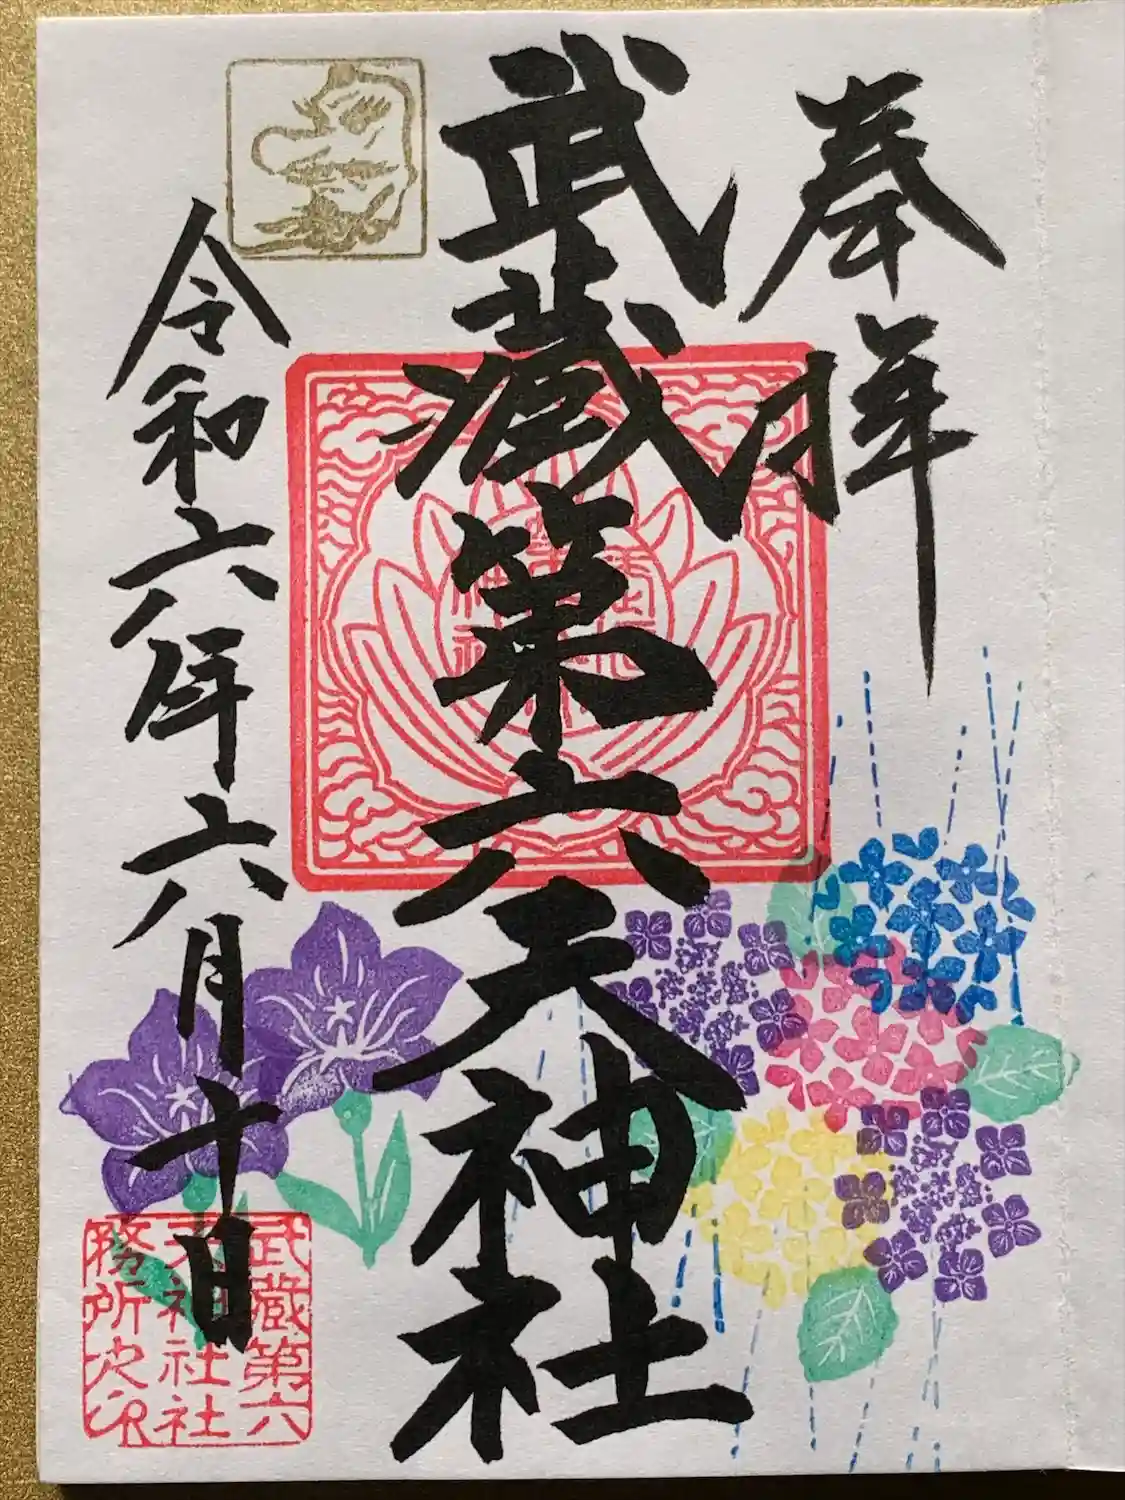 奉拝
武蔵第六天神社
令和六年六月十日
武蔵第六
天神社社
務所之印